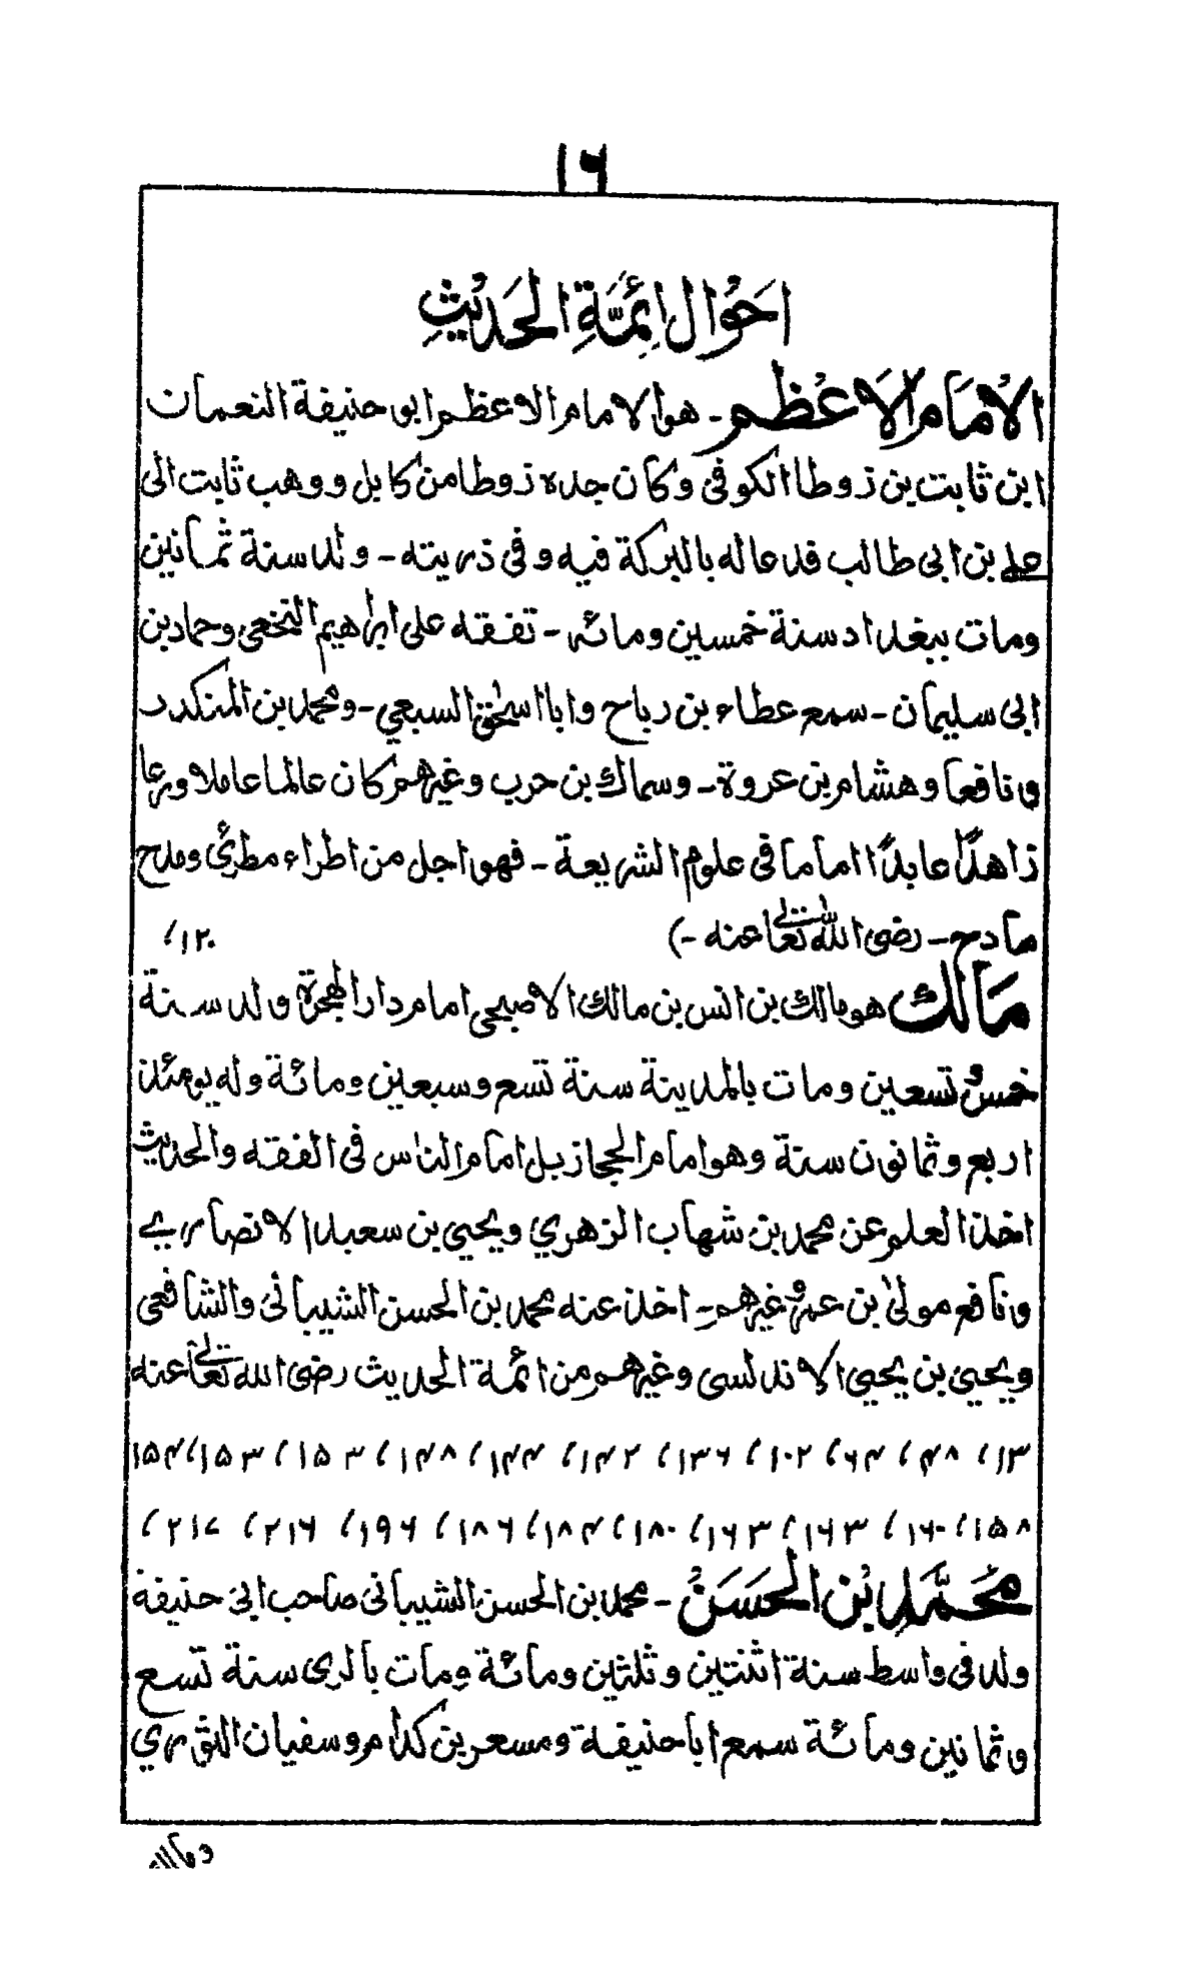 ١٦
اَحْوَال اَئِمَّةِ الحَدِيْثِ
الْاِمَام الْاَعْظم ۔ هو الامام الاعظم ابو حنيفة النعمان
ابن ثابت بن زوطا الكوفى وكان جده زوطا من كابل ووهب ثابت الى
على بن ابى طالب قد عاله بالبركة فيه وفى ذريته ۔ ولد سنة ثمانين
ومات ببغداد سنة خمسين ومائه ۔ تفقه على ابراهيم النخعى وحماد بن
ابى سليمان ۔ سمع عطاء بن رباح وابا اسحٰق السبعي ۔ ومحمد بن المنكدر
ونافعا وهشام بن عروة ۔ وسماك بن حرب وغيرهم كان عالما عاملا ورعا
زاهدًا عابدًا اماما فى علوم الشريعة ۔ فهو اجل من اطراء مطرئ ومدح
مادح ۔ رضى الله تعالىٰ عنه ۔) ١٢٠/
مَالك هو مالك بن انس بن مالك الاصبحى امام دار الهجرة ولد سنة
خمس و تسعين ومات بالمدينة سنة تسع وسبعين ومائة وله يومئذ
اربع وثمانون سنة وهو امام الحجاز بل امام الناس فى الفقه والحديث
اخذ العلم عن محمد بن شهاب الزهري ويحيى بن سعيد الانصاري
ونافع مولىٰ بن عمر وغيرهم ۔ اخذ عنه محمد بن الحسن الشيبانى والشافعى
ويحيىٰ بن يحيى الاندلسى وغيرهم من ائمة الحديث رضى الله تعالىٰ عنه
١٣/ ٤٨/ ٦٤/ ١٠٢/ ١٣٦/ ١٤٢/ ١٤٤/ ١٤٨/ ١٥٣/ ١٥٣/ ١٥٤
١٥٨/ ١٦٠/ ١٦٣/ ١٦٣/ ١٨٠/ ١٨٤/ ١٨٦/ ١٩٦/ ٢١٦/ ٢١٧/
مُحَمَّد بْن الحَسَنْ ۔ محمد بن الحسن الشيبانى صاحب ابى حنيفة
ولد فى واسط سنة اثنتين وثلثين ومائة ومات بالرى سنة تسع
وثمانين ومائة سمع ابا حنيفة ومسعر بن كدام وسفيان الثوري
ومالك